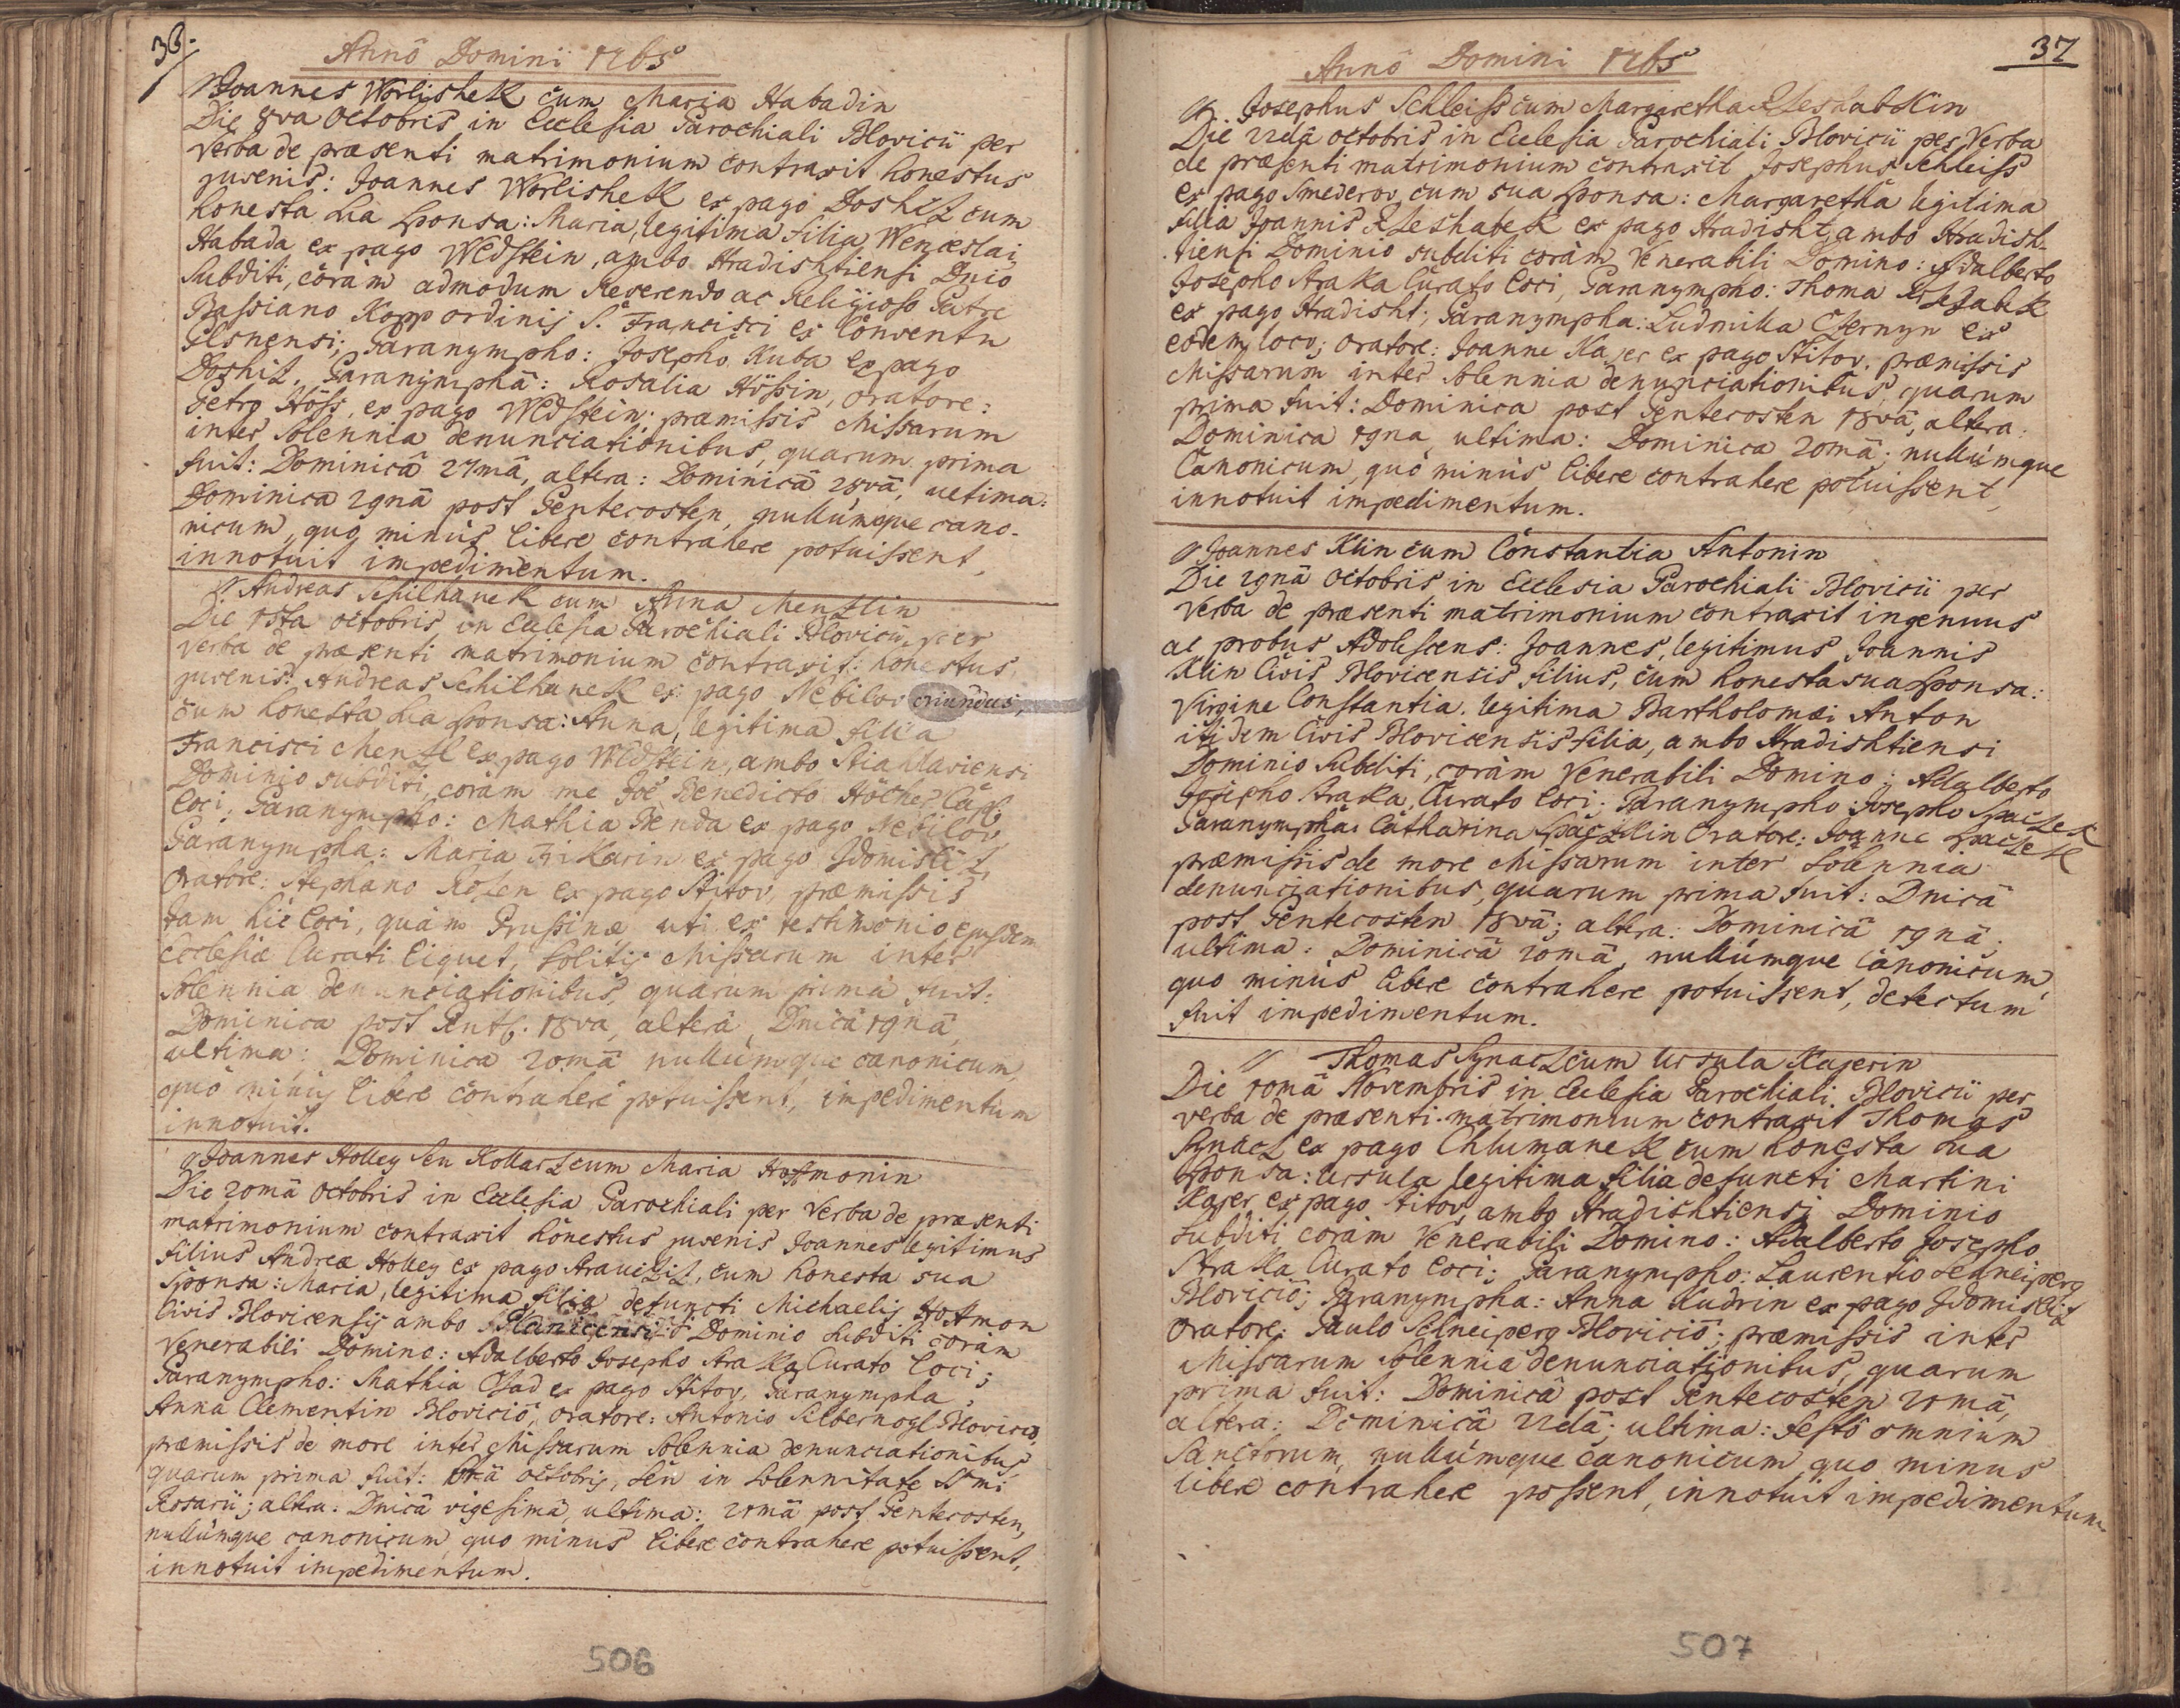 36.
Anno Domini 1765
Joannes Worlishek cum Maria Habadin
Die 8va Octobris in Ecclesia Parochiali Blovicii per
Verba de præsenti matrimonium contraxit honestus
juvenis: Joannes Worlishek ex pago Doshiz cum
honesta sua sponsa: Maria, legitima filia Wenceslai
Habada ex pago Wildstein, ambo Hradishtiensi Dnio
subditi, coram admodum Reverendo ac Religioso Patre
Bassiano Kopp ordinis S. Francisci ex Conventu
Pilsnensi; Paranympho: Josepho Kuba ex pago
Doshiz. Paranympha: Rosalia Hössin, oratore:
Petro Höss, ex pago Wildstein; præmissis Missarum
inter solennia denunciationibus, quarum prima
fuit: Dominicâ 17mâ, altera: Dominicâ 18vâ, ultima:
Dominica 19nâ post Pentecosten, nullumque cano-
nicum, quo minus libere contrahere potuissent,
innotuit impedimentum.
Andreas Schilhanek cum Anna Menzlin
Die 15ta octobris in Ecclesia Parochiali Blovicii per
verba de præsenti matrimonium contraxit: honestus
juvenis: Andreas Schilhanek ex pago Nebilov oriundus,
cum honesta sua sponsa: Anna, legitima filia
Francisci Menzl ex pago Wildstein, ambo Stiahlaviensi
Dominio subditi, coram me Joë Benedicto Höcher Capl.
loci, Paranympho: Mathia Benda ex pago Nebilov,
Paranympha: Maria Frikarin ex pago Zdomisliz,
Oratore: Stephano Rosen ex pago Stitov, præmissis
tam hic loci, quam Prussinæ uti ex testimonio ejusdem
Ecclesiæ Curati liquet, solitis Missarum inter
solennia denunciationibus, quarum prima fuit:
Dominica post Pent. 18va, altera Dnicâ 19nâ,
ultima: Dominica 20mâ nullumque canonicum,
quo minus libere contrahere potuissent, impedimentum
innotuit.
Joannes Holley seu Kollarz cum Maria Hoffmonin
Die 20mâ Octobris in Ecclesia Parochiali per Verba de præsenti
matrimonium contraxit honestus juvenis Joannes legitimus
filius Andreæ Holley ex pago Stauiziz, cum honesta sua
Sponsa: Maria, legitima filia defuncti Michaelis Hoffmon
Civis Blovicensis ambo Dominio subditi coram
Venerabili Domino: Adalberto Josepho Straka Curato loci;
Paranympho: Mathia Chad ex pago Stitov, Paranympha
Anna Clementin Bloviciô, oratore: Antonio Silbernogl Bloviciô,
præmissis de more inter Missarum solennia denunciationibus,
quarum prima fuit: octobris, seu in solennitate SSmi
Rosarii; altera: Dnicâ vigesimâ, ultima: 21mâ post Pentecosten,
nullumque canonicum quo minus libere contrahere potuissent,
innotuit impedimentum.
506
37
Anno Domini 1765
Josephus Schleiss cum Margaretha Rzeshabkin
Die 22dâ octobris in Ecclesia Parochiali Blovicii per Verba
de præsenti matrimonium contraxit Josephus Schleiss
ex pago Smederov, cum sua sponsa: Margaretha legitima
filia Joannis Rzeshabek ex pago Hradisht, ambo Hradish-
tiensi Dominio subditi coram Venerabili Domino: Adalberto
Josepho Straka Curato loci, Paranympho: Thoma Rzezabek
ex pago Hradisht; Paranympha: Ludmilla Czernyn ex
eodem loco; Oratore: Joanne Kajer ex pago Stitov, præmissis
Missarum inter solennia denunciationibus, quarum
prima fuit: Dominica post Pentecosten 18vâ, altera:
Dominica 19na, ultima: Dominica 20mâ; nullumque
Canonicum, quo minus libere contrahere potuissent,
innotuit impedimentum.
Joannes Klin cum Constantia Antonin
Die 29nâ octobris in Ecclesia Parochiali Blovicii per
Verba de præsenti matrimonium contraxit ingenuus
ac probus Adolescens: Joannes, legitimus Joannis
Klin Civis Blovicensis filius, cum honesta sua sponsa:
Virgine Constantia, legitima Bartholomæi Anton
itidem Civis Blovicensis filia, ambo Hradishtiensi
Dominio subditi, coram Venerabili Domino: Adalberto
Josepho Straka, Curato loci. Paranympho: Josepho Spaczek
Paranympha: Catharina Spaczkin Oratore: Joanne Spaczek
præmissis de more Missarum inter solennia
denunciationibus, quarum prima fuit: Dnicâ
post Pentecosten 18vâ; altera: Dominicâ 19nâ;
ultima: Dominicâ 20mâ, nullumque Canonicum,
quo minus libere contrahere potuissent, detectum
fuit impedimentum.
Thomas Synacz cum Ursula Kajerin
Die 10mâ Novembris in Ecclesia Parochiali Blovicii per
verba de præsenti matrimonium contraxit Thomas
Synacz ex pago Chlumanek cum honesta sua
sponsa: Ursula legitima filia defuncti Martini
Kajer ex pago Stitov ambo Hradishtiensi Dominio
subditi coram Venerabili Domino: Adalberto Josepho
Straka Curato loci; Paranympho: Laurentio Schneiperg
Bloviciô; Paranympha: Anna Kudrin ex pago Zdomisliz
Oratore: Paulo Schneiperg Bloviciô; præmissis inter
Missarum solennia denunciationibus, quarum
prima fuit: Dominicâ post Pentecosten 21mâ,
altera: Dominicâ 22dâ; ultima: festô omnium
Sanctorum, nullumque canonicum quo minus
libere contrahere possent, innotuit impedimentum
507